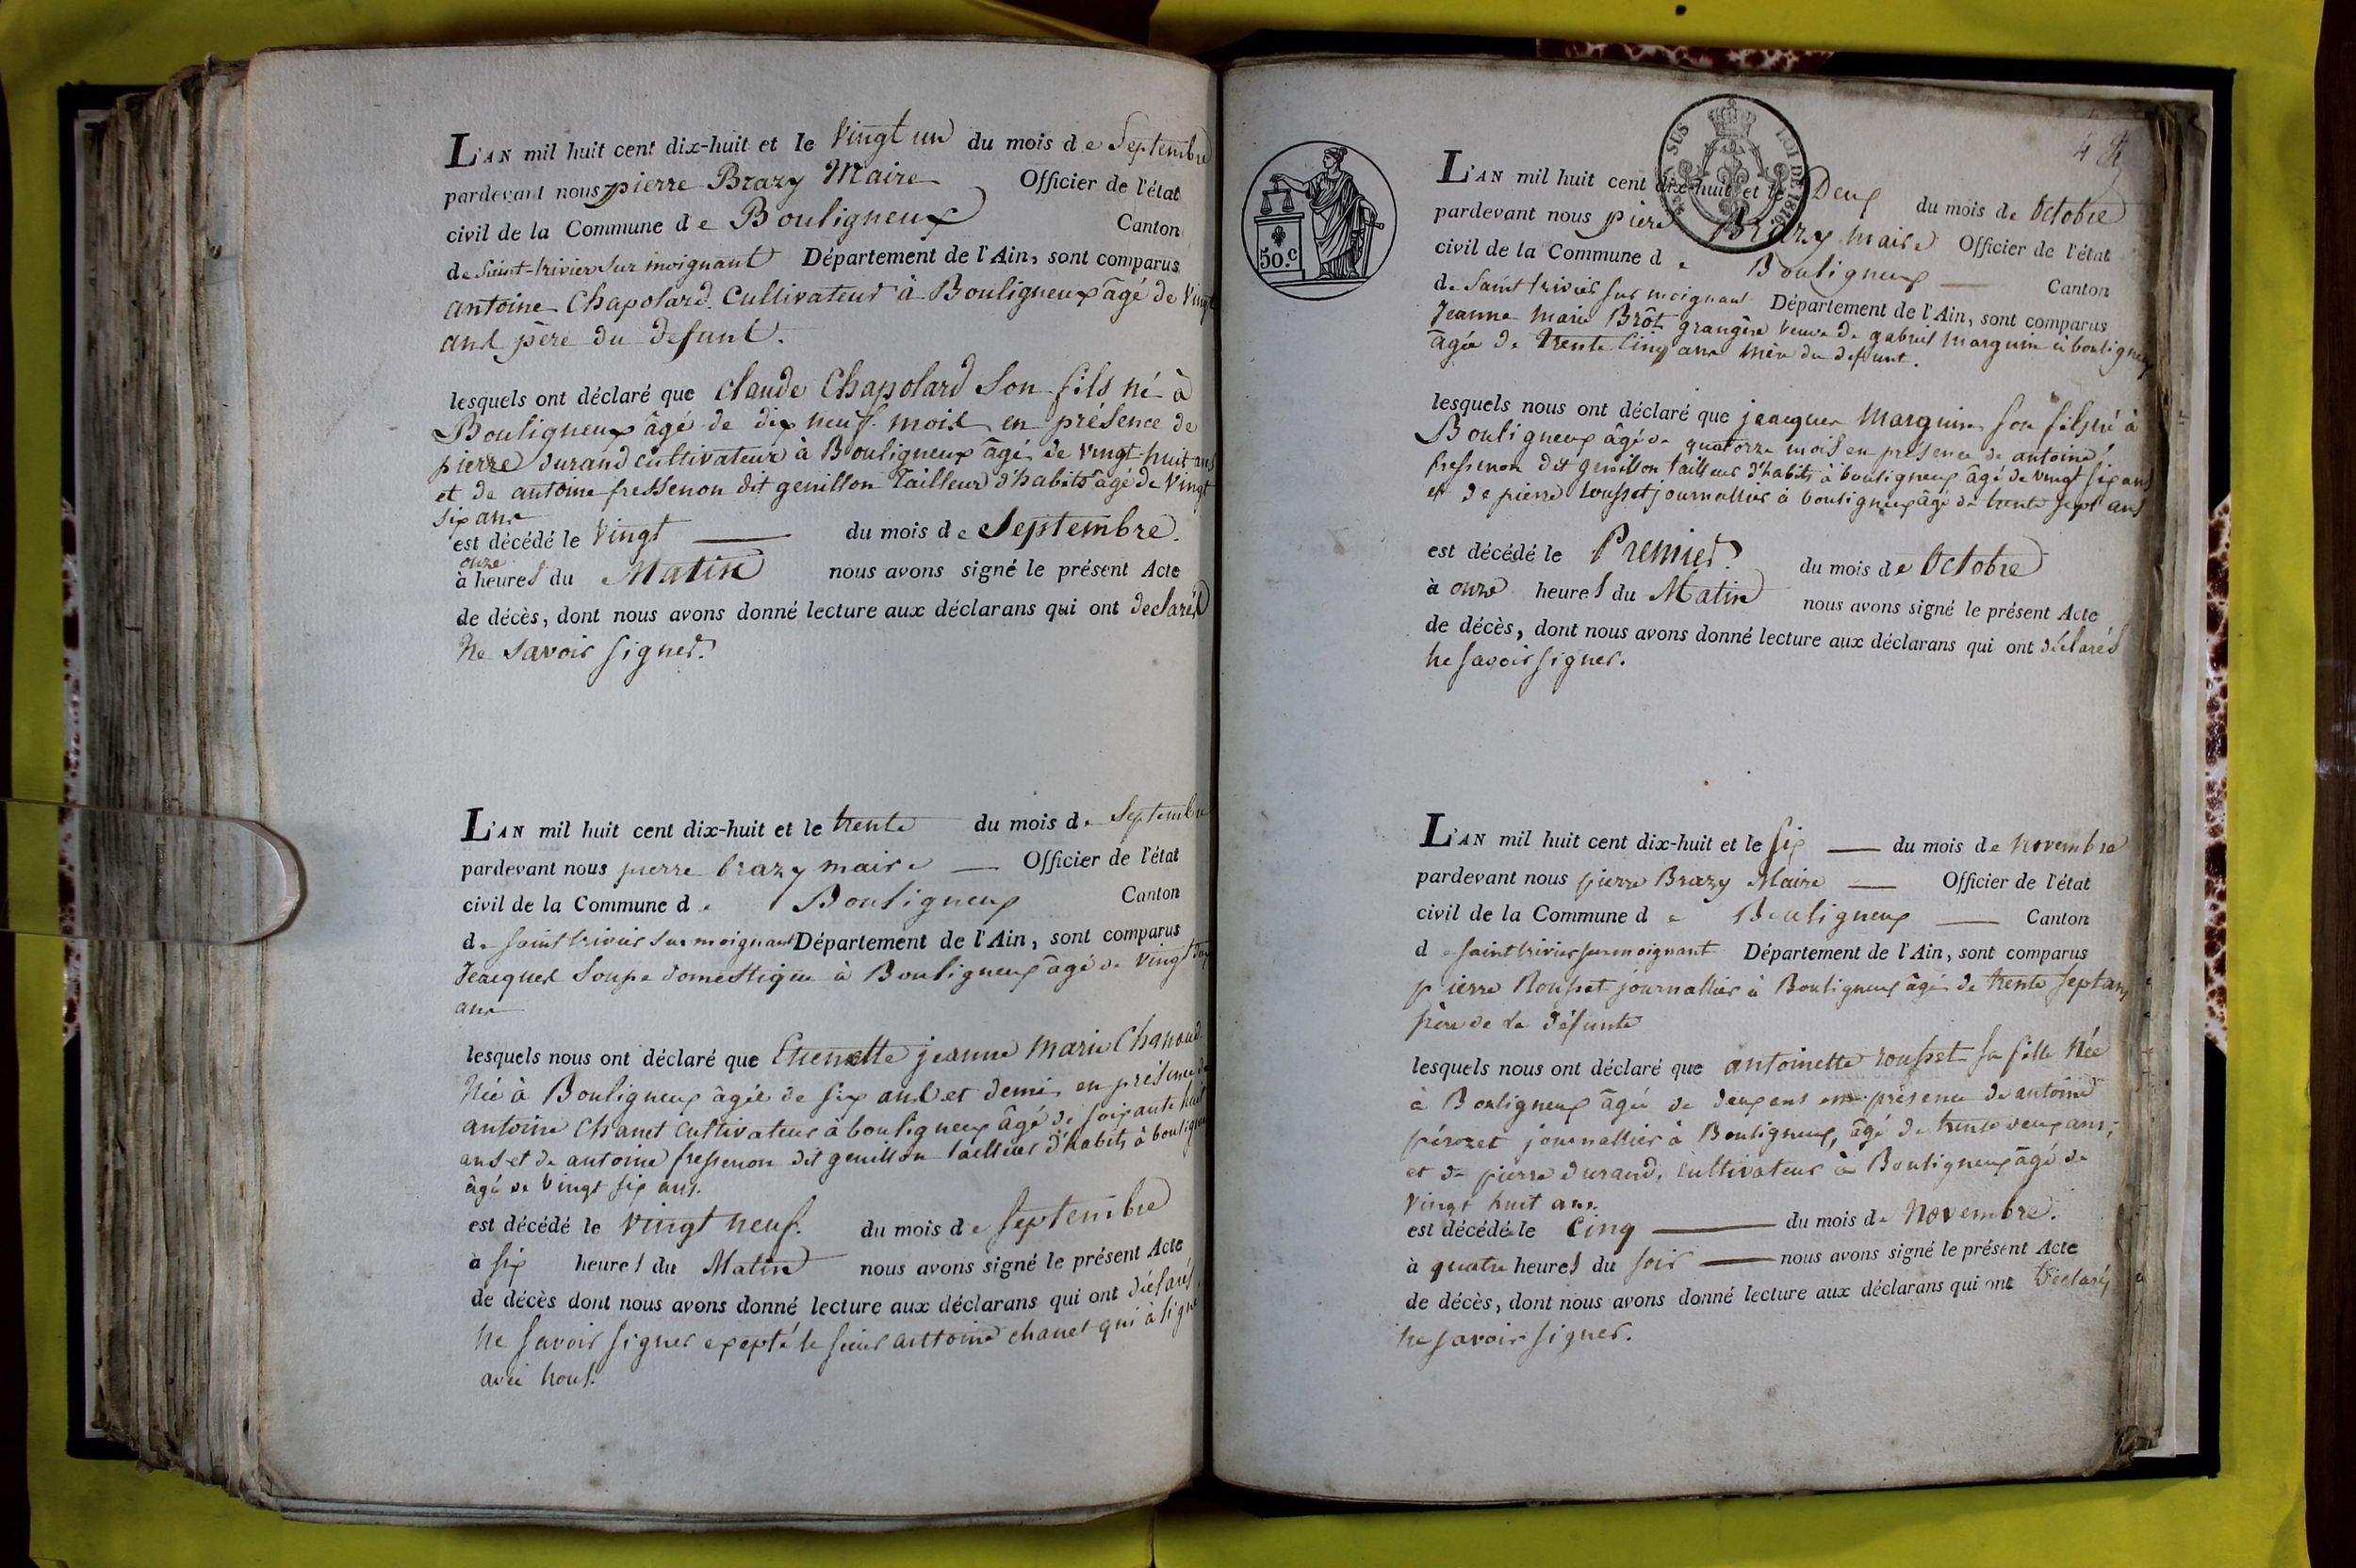 L'AN mil huit cent dix-huit et le Vingt un du mois de Septembre
pardevant nous pierre Brazy Maire Officier de l'état
civil de la Commune de Bouligneux Canton
de Saint-trivier Sur moignant Département de l'Ain, sont comparus
antoine Chapolard Cultivateur à Bouligneux âgé de Vingt
ans père du defunt.
lesquels ont déclaré que claude Chapolard Son fils né à
Bouligneux âgé de dix neuf mois en présence de
pierre durand cultivateur à Bouligneux âgé de vingt-huit ans
et de antoine fressenon dit genillon Tailleur d'habits âgé de Vingt
six ans
est décédé le Vingt du mois de Septembre.
onze
à heures du Matin nous avons signé le présent Acte
de décès, dont nous avons donné lecture aux déclarans qui ont declarés
ne savoir signer.
L'AN mil huit cent dix-huit et le trente du mois de Septembre
pardevant nous pierre brazy maire Officier de l'état
civil de la Commune de Bouligneux Canton
de saint trivier sur moignant Département de l'Ain, sont comparus
Jeacques Soupe domestique à Bouligneux âgé de vingt
ans
lesquels nous ont déclaré que Etienette jeanne Marie Chanoud
Née à Bouligneux âgée de six ans et demi en présence de
antoine Chanet cultivateur à bouligneux âgé de soixante huit
ans et de antoine fressenon dit genillon tailleur d'habits à bouligneux
âgé de vingt six ans.
est décédé le vingt neuf. du mois de septembre
à six heures du Matin nous avons signé le présent Acte
de décès dont nous avons donné lecture aux déclarans qui ont déclarés
ne savoir signer excepté le sieur anttoine chanet qui à signé
avec nous.
SUS LOI DE 1816.
50.c
4
L'AN mil huit cent dix-huit et le Deux du mois de Octobre
pardevant nous piere Brazy maire Officier de l'état
civil de la Commune de Bouligneux Canton
de Saint trivier sur moignant Département de l'Ain, sont comparus
Jeanne marie Brôt grangère veuve de gabriel marguin à bouligneux
âgée de trente cinq ans mère du defunt.
lesquels nous ont déclaré que jeacques Marguin son fils né à
Bouligneux âgé de quatorze mois en présence de antoine
fressenon dit genillon tailleur d'habits à bouligneux âgé de vingt six ans
et de pierre rousset journallier à bouligneux âgé de trente sept ans
est décédé le Premier du mois de Octobre
à onze heures du Matin nous avons signé le présent Acte
de décès, dont nous avons donné lecture aux déclarans qui ont déclarés
ne savoir signer.
L'AN mil huit cent dix-huit et le six du mois de novembre
pardevant nous pierre Brazy Maire Officier de l'état
civil de la Commune de Bouligneux Canton
de saint trivier sur moignant Département de l'Ain, sont comparus
pierre Rousset journallier à Bouligneux âgé de trente sept ans
père de la défunte
lesquels nous ont déclaré que antoinette rousset sa fille Née
à Bouligneux âgée de deux ans en présence de antoine
pérozet journallier à Bouligneux, âgé de trente deux ans;
et de pierre durand, cultivateur à Bouligneux âgé de
vingt huit ans.
est décédé le Cinq du mois de Novembre.
à quatre heures du soir nous avons signé le présent Acte
de décès, dont nous avons donné lecture aux déclarans qui ont Déclarés
ne savoir signer.